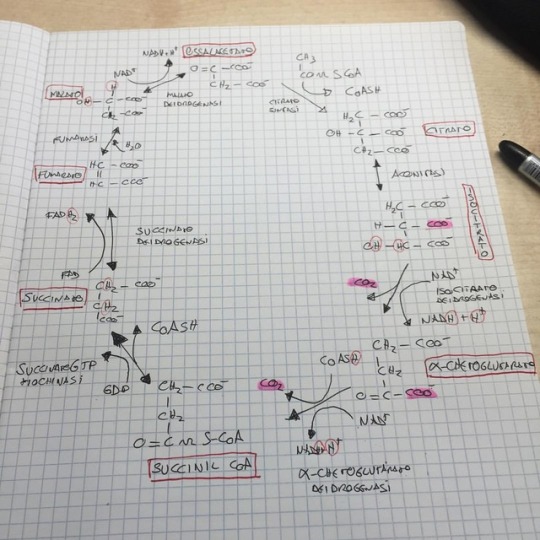 NADH+H⁺
OSSALACETATO
NAD⁺
O=C-COO⁻
CH₂-COO⁻
MALATO
DEIDROGENASI
CH₃
CO~SCoA
CoASH
CITRATO
SINTASI
H₂C-COO⁻
OH-C-COO⁻
CH₂-COO⁻
CITRATO
ACONITASI
H₂C-COO⁻
H-C-COO⁻
OH-HC-COO⁻
ISOCITRATO
CO₂
NAD⁺
ISOCITRATO
DEIDROGENASI
NADH+H⁺
CH₂-COO⁻
CH₂
O=C-COO⁻
α-CHETOGLUTARATO
CoASH
CO₂
NAD⁺
NADH H⁺
α-CHETOGLUTARATO
DEIDROGENASI
CH₂-COO⁻
CH₂
O=C~S-CoA
SUCCINIL CoA
CoASH
SUCCINATO GTP
GDP
SUCCINATO
CH₂-COO⁻
CH₂
COO⁻
FADH₂
FAD
SUCCINATO
DEIDROGENASI
FUMARATO
HC-COO⁻
HC-COO⁻
FUMARASI
H₂O
MALATO
H
OH-C-COO⁻
CH₂-COO⁻